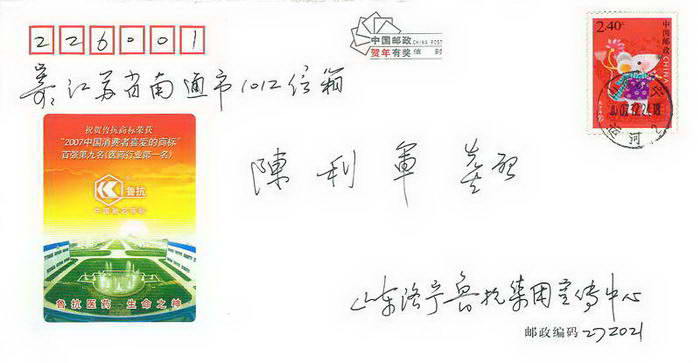 226001
中国邮政 CHINA POST
贺年有奖 信封
2.40元
中国邮政
CHINA
寄:江苏省南通市1012信箱
07.12.21.18
河
祝贺鲁抗商标荣获
"2007中国消费者喜爱的商标"
百强第九名(医药行业第一名)
鲁抗
中国驰名商标
陳利軍
鲁抗医药 生命之神
山东济宁鲁抗集团宣传中心
邮政编码 272021